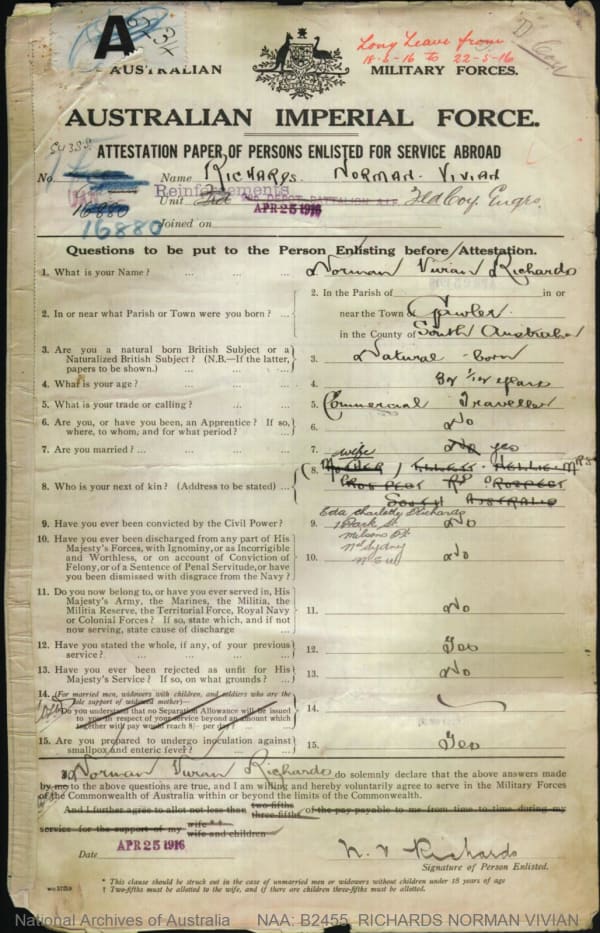 A
AUSTRALIAN MILITARY FORCES.
Long Leave from
18-5-16 to 22-5-16
AUSTRALIAN IMPERIAL FORCE.
ATTESTATION PAPER OF PERSONS ENLISTED FOR SERVICE ABROAD
No. Name RICHARDS. NORMAN. VIVIAN
16880 Reinforcements
Unit Fld Coy. Engrs.
APR 25 1916
16880 Joined on
Questions to be put to the Person Enlisting before Attestation.
1. What is your Name? ... ... ... Norman Vivian Richards
2. In or near what Parish or Town were you born? ... 2. In the Parish of in or
near the Town of Gawler
in the County of South Australia
3. Are you a natural born British Subject or a
Naturalized British Subject? (N.B.—If the latter,
papers to be shown.) ... ... 3. Natural-born
4. What is your age? ... ... ... 4. years
5. What is your trade or calling? ... ... ... 5. Commercial Traveller
6. Are you, or have you been, an Apprentice? If so,
where, to whom, and for what period? ... 6. No
7. Are you married? ... ... ... ... 7. No yes
8. Who is your next of kin? (Address to be stated) ... 8. wife
MOTHER) NELLIE MRS
PROSPECT RD PROSPECT
SOUTH AUSTRALIA
Eda Charlotte Richards
Park St
Milsons Pt
Nth Sydney
NSW
9. Have you ever been convicted by the Civil Power? 9. No
10. Have you ever been discharged from any part of His
Majesty's Forces, with Ignominy, or as Incorrigible
and Worthless, or on account of Conviction of
Felony, or of a Sentence of Penal Servitude, or have
you been dismissed with disgrace from the Navy? 10. No
11. Do you now belong to, or have you ever served in, His
Majesty's Army, the Marines, the Militia, the
Militia Reserve, the Territorial Force, Royal Navy
or Colonial Forces? If so, state which, and if not
now serving, state cause of discharge 11. No
12. Have you stated the whole, if any, of your previous
service? ... ... ... ... 12. Yes
13. Have you ever been rejected as unfit for His
Majesty's Service? If so, on what grounds? ... 13. No
14. (For married men, widowers with children, and soldiers who are the
sole support of widowed mother)—
Do you understand that no Separation Allowance will be issued
to you in respect of your service beyond an amount which
together with pay would reach 8/- per day? ... 14.
15. Are you prepared to undergo inoculation against
smallpox and enteric fever? ... ... 15. Yes
I, Norman Vivian Richards do solemnly declare that the above answers made
by me to the above questions are true, and I am willing and hereby voluntarily agree to serve in the Military Forces
of the Commonwealth of Australia within or beyond the limits of the Commonwealth.
And I further agree to allot not less than two-fifths three-fifths of the pay payable to me from time to time during my
service for the support of my wife*† wife and children
Date APR 25 1916 N. V Richards
Signature of Person Enlisted.
* This clause should be struck out in the case of unmarried men or widowers without children under 18 years of age
† Two-fifths must be allotted to the wife, and if there are children three-fifths must be allotted.
National Archives of Australia NAA: B2455, RICHARDS NORMAN VIVIAN